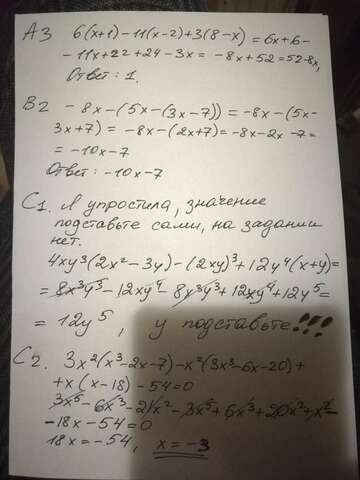 А3 6(x+1)-11(x-2)+3(8-x)=6x+6-
-11x+22+24-3x= -8x+52=52-8x,
Ответ: 1.
В2 -8x-(5x-(3x-7))=-8x-(5x-
3x+7)= -8x-(2x+7)=-8x-2x-7=
= -10x-7
Ответ: -10x-7
С1. Я упростила, значение
подставьте сами, на задании
нет.
4xy³(2x²-3y)-(2xy)³+12y⁴(x+y)=
= 8x³y³-12xy⁴-8x³y³+12xy⁴+12y⁵=
= 12y⁵, y подставьте!!!
С2. 3x²(x³-2x-7)-x²(3x³-6x-20)+
+x(x-18)-54=0
3x⁵-6x³-21x²-3x⁵+6x³+20x²+x²-
-18x-54=0
18x=-54, x=-3